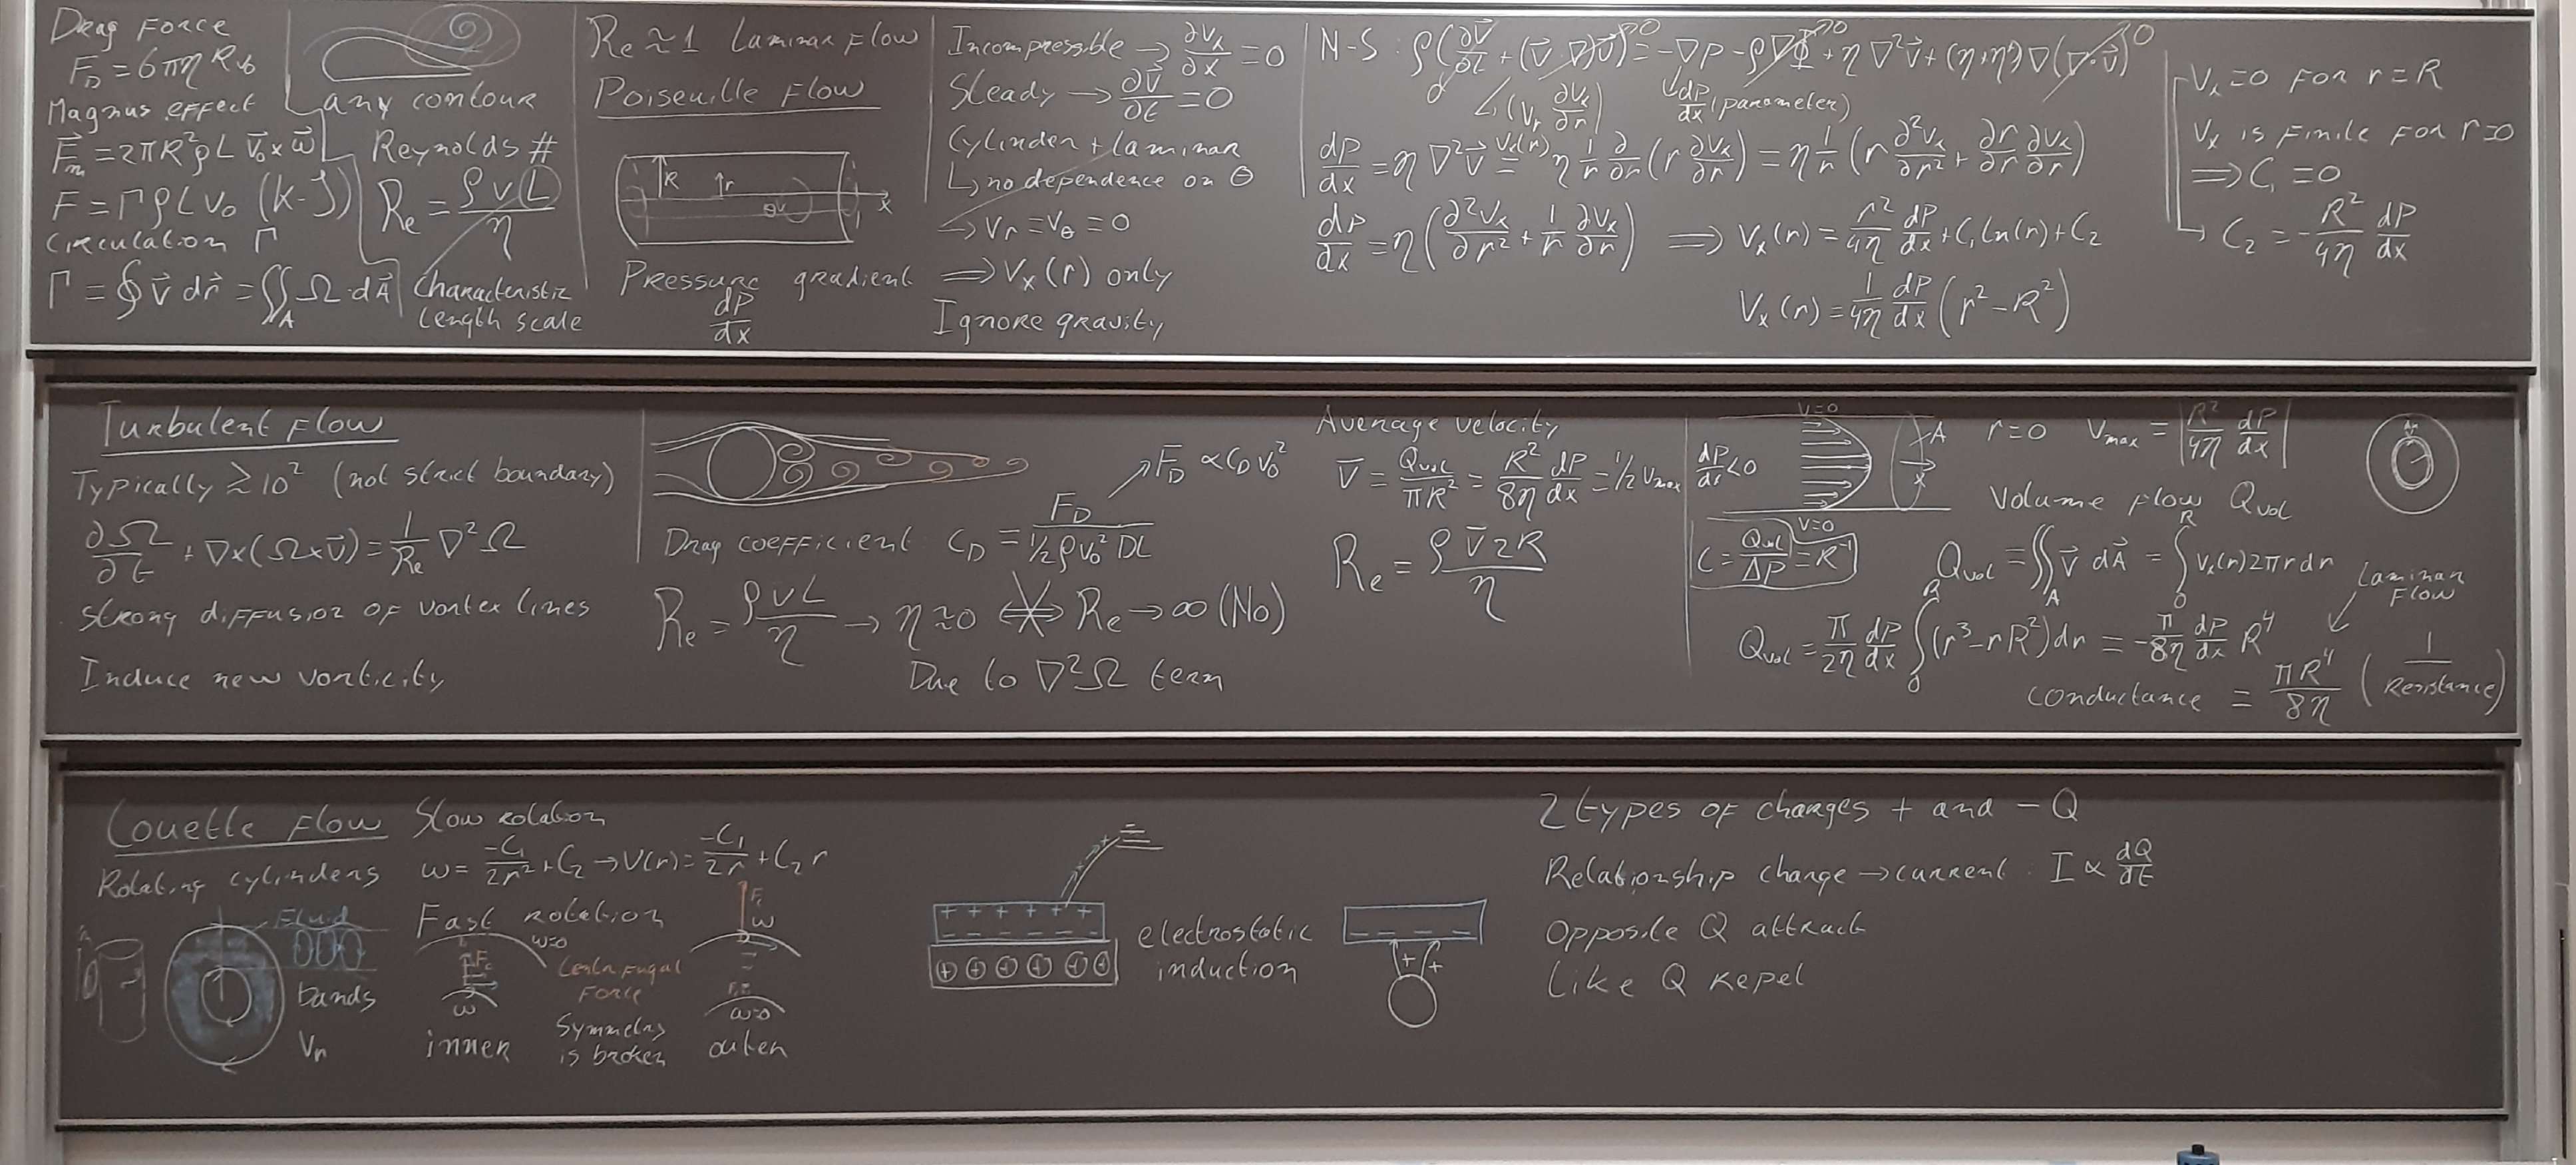 Drag Force
F_D = 6πη R v₀
Magnus effect
F⃗_m = 2πR²ρL v⃗₀ × ω⃗
F = Γ ρ L v₀ (K-J)
Circulation Γ
Γ = ∮ v⃗ dr⃗ = ∬_A Ω · dA⃗
any contour
Reynolds #
Re = ρvL / η
Characteristic
length scale
Re ≈ 1 Laminar Flow
Poiseuille Flow
R
r
x
Pressure gradient
dP/dx
Incompressible → ∂v_x/∂x = 0
Steady → ∂v⃗/∂t = 0
Cylinder + laminar
↳ no dependence on θ
→ v_r = v_θ = 0
⇒ v_x(r) only
Ignore gravity
N-S : ρ(∂v⃗/∂t + (v⃗ ∇)v⃗) = -∇P - ρ∇Φ + η∇²v⃗ + (η+η')∇(∇·v⃗)
0 (v_r ∂v_x/∂r) dP/dx (parameter)
dP/dx = η∇²v⃗ = v_x(r) η 1/r ∂/∂r (r ∂v_x/∂r) = η 1/r (r ∂²v_x/∂r² + ∂r/∂r ∂v_x/∂r)
dP/dx = η(∂²v_x/∂r² + 1/r ∂v_x/∂r) ⇒ v_x(r) = r²/4η dP/dx + C₁ ln(r) + C₂
v_x(r) = 1/4η dP/dx (r² - R²)
v_x = 0 for r = R
v_x is finite for r = 0
⇒ C₁ = 0
C₂ = -R²/4η dP/dx
Turbulent Flow
Typically ≳ 10² (not strict boundary)
∂Ω/∂t + ∇×(Ω×v⃗) = 1/Re ∇²Ω
strong diffusion of vortex lines
Induce new vorticity
F_D ∝ C_D v₀²
Drag coefficient C_D = F_D / ½ρv₀²DL
Re = ρvL/η → η ≈ 0 ⇔ Re → ∞ (No)
Due to ∇²Ω term
Average velocity
v̄ = Q_vol/πR² = R²/8η dP/dx = ½ v_max
Re = ρ v̄ 2R / η
v=0
dP/dx < 0
A
x
v=0
C = Q_vol/ΔP = R⁻¹
r=0 v_max = |R²/4η dP/dx|
Volume flow Q_vol
Q_vol = ∬_A v⃗ dA⃗ = ∫₀^R v_x(r) 2πr dr
Laminar
Flow
Q_vol = π/2η dP/dx ∫₀^R (r³ - rR²) dr = -π/8η dP/dx R⁴
conductance = πR⁴/8η (1/Resistance)
Couette Flow
Slow rotation
Rotating cylinders
ω = -C₁/2r² + C₂ → v(r) = -C₁/2r + C₂ r
Fluid
bands
v_r
Fast rotation
ω=0
F_c
ω
inner
Centrifugal
Force
Symmetry
is broken
F_c
ω
ω=0
outer
+ + + + + +
− − − − − −
⊕ ⊕ ⊕ ⊕ ⊕ ⊕
electrostatic
induction
− − − −
+ +
2 types of charges + and − Q
Relationship charge → current : I ∝ dQ/dt
Opposite Q attract
Like Q repel